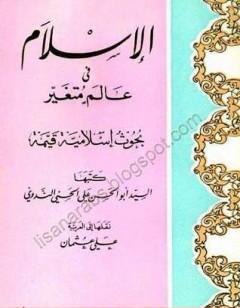 الإسلام
في
عالم متغير
بحوث إسلامية قيمة
كتبها
السيد أبو الحسن علي الحسني الندوي
نقلها إلى العربية
علي عثمان
lisanarabs.blogspot.com